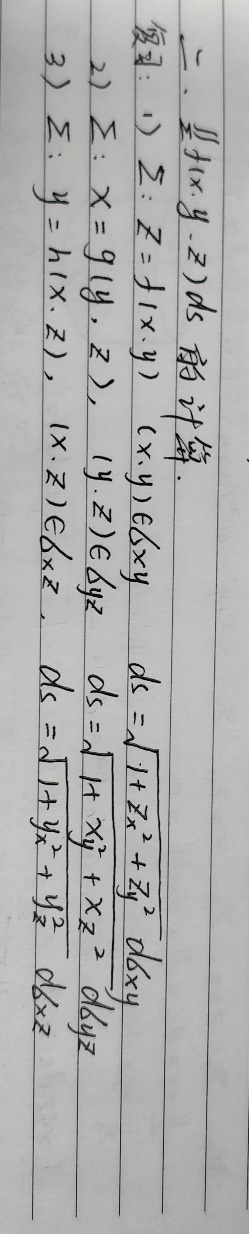 二、∬_Σ f(x.y.z)ds 的计算.
复习: 1) Σ: z=f(x.y) (x.y)∈σxy ds=√(1+z_x²+z_y²) dσxy
2) Σ: x=g(y,z), (y.z)∈σyz ds=√(1+x_y²+x_z²) dσyz
3) Σ: y=h(x.z), (x.z)∈σxz. ds=√(1+y_x²+y_z²) dσxz